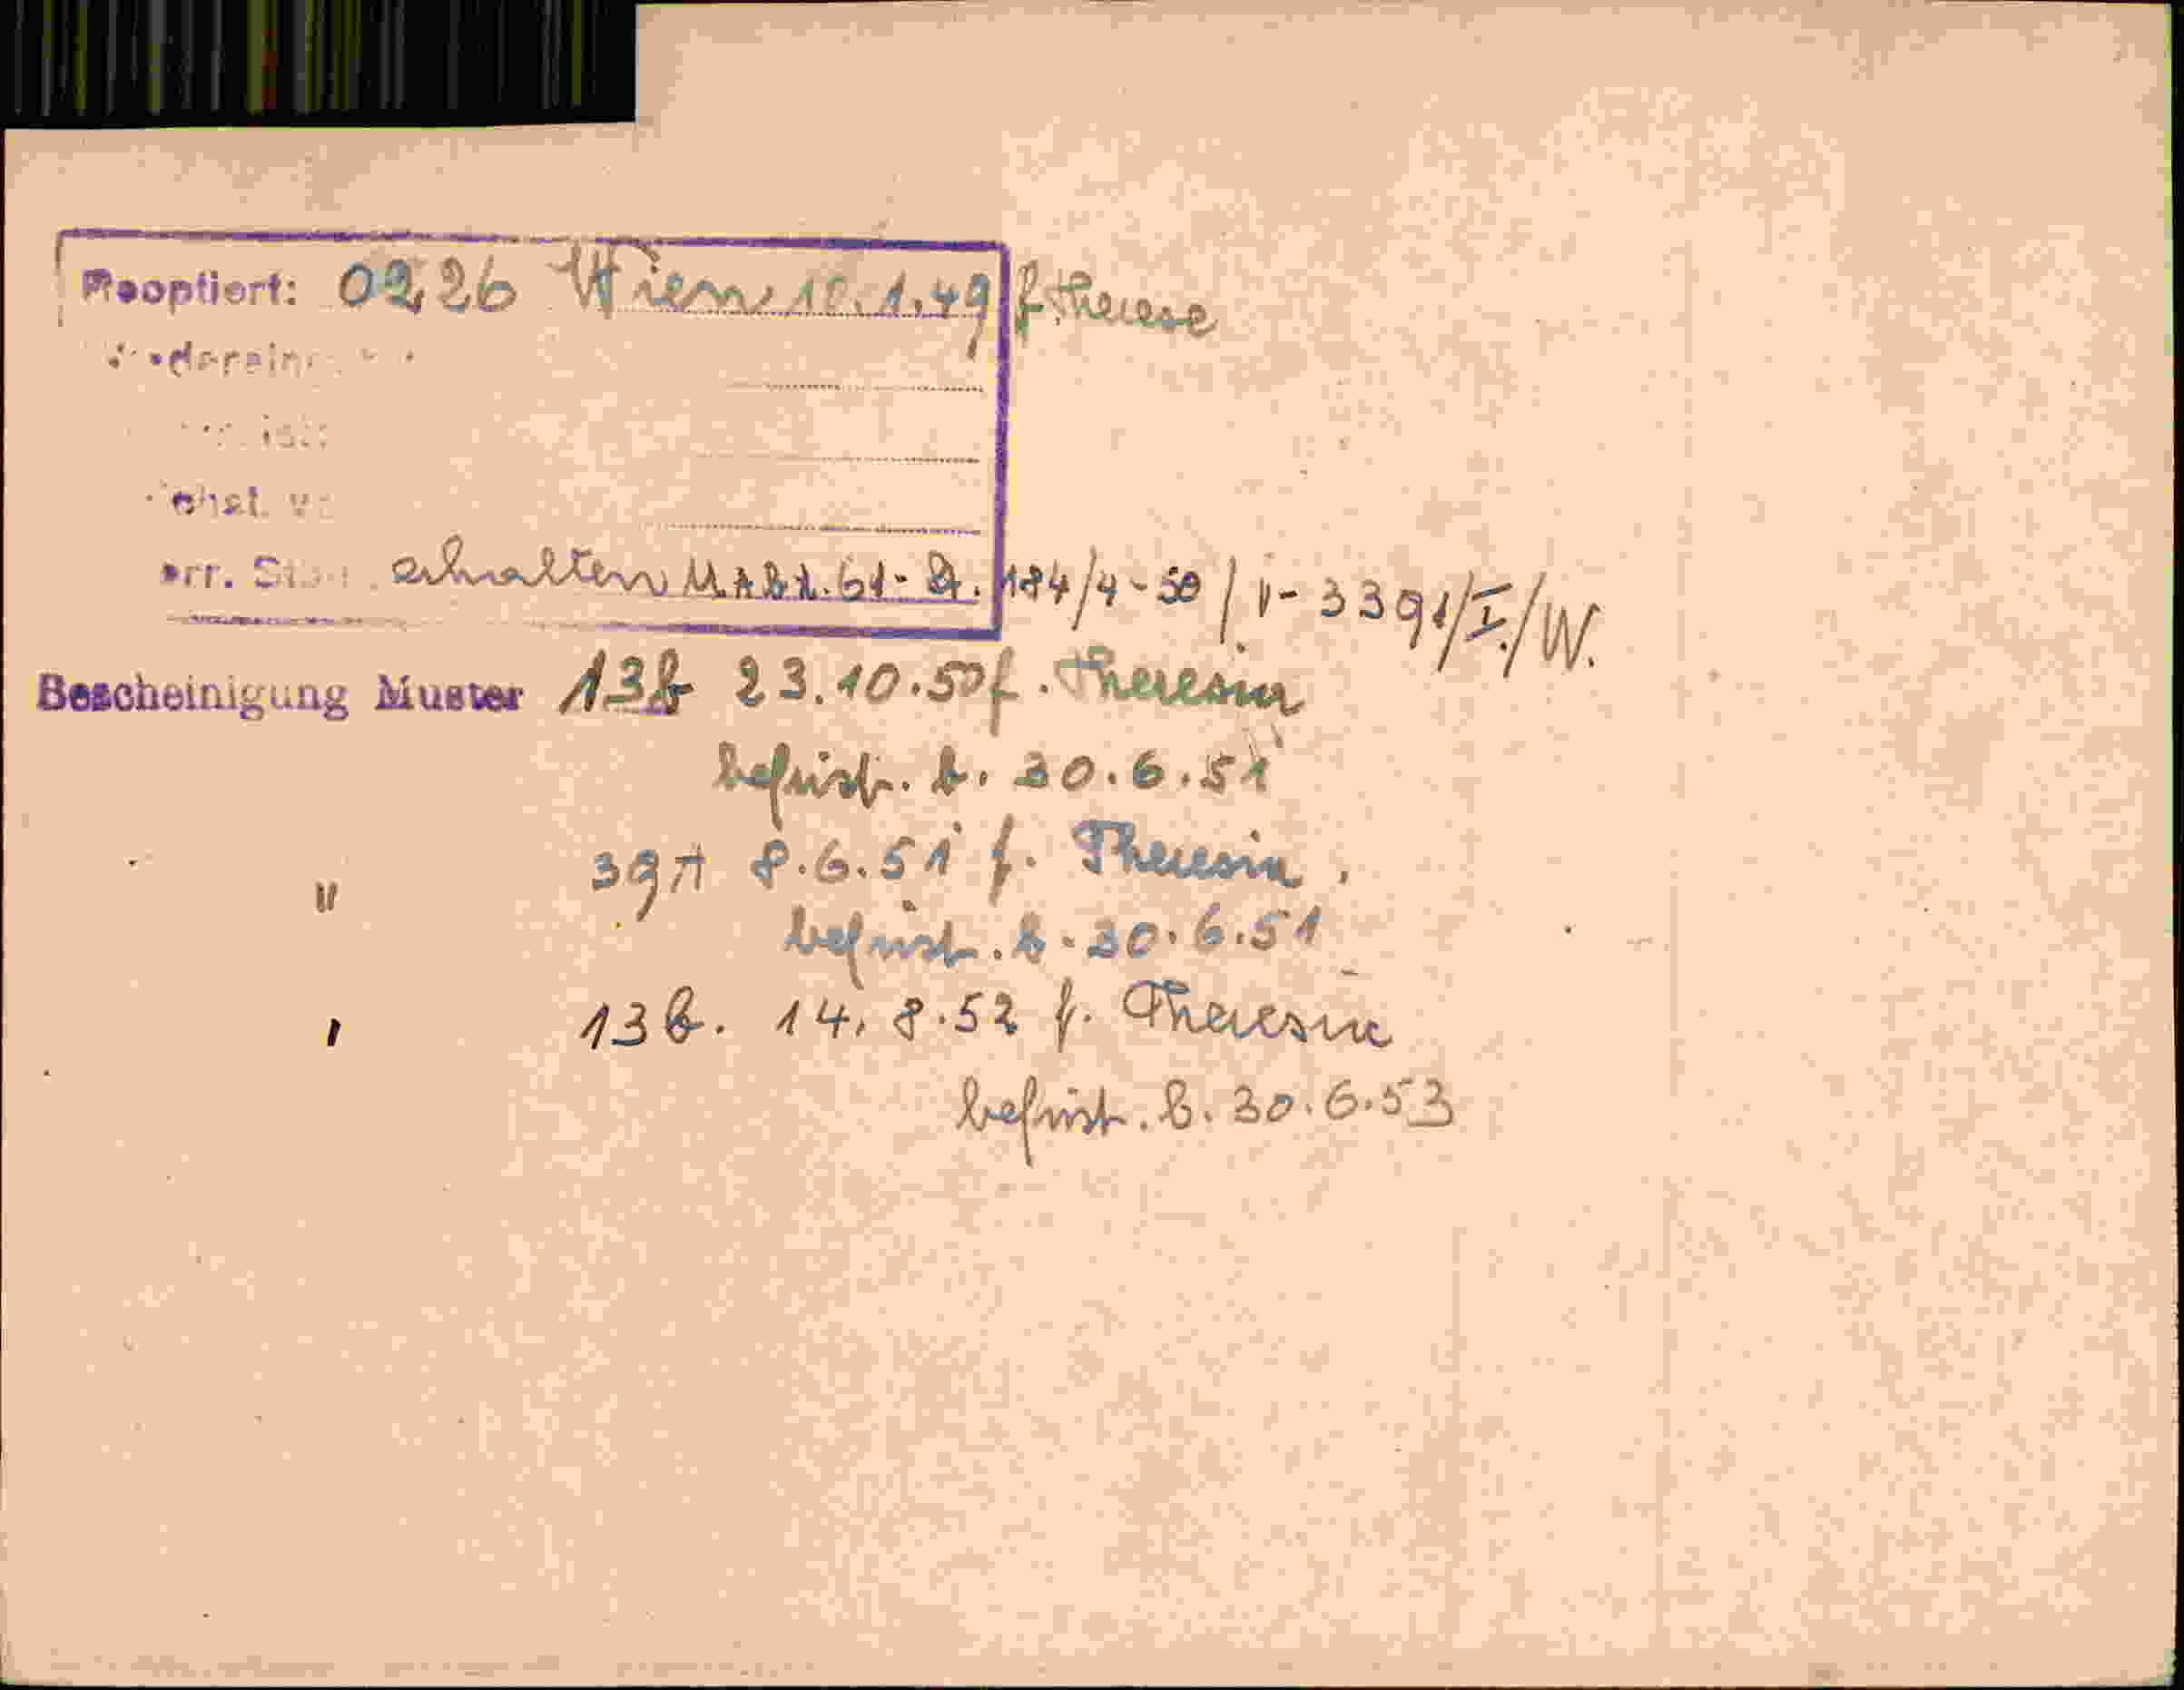 Reoptiert: 0226 Wien 10.1.49 f. Therese
österr. Staatsb. erhalten M.Abt. 61-
184/4-50 / V-3391/I./W.
Bescheinigung Muster 13b 23.10.50 f. Theresia
befrist. b. 30.6.51
" 39A 8.6.51 f. Theresia.
befrist. b. 30.6.51
13b. 14.8.52 f. Theresia
befrist. b. 30.6.53